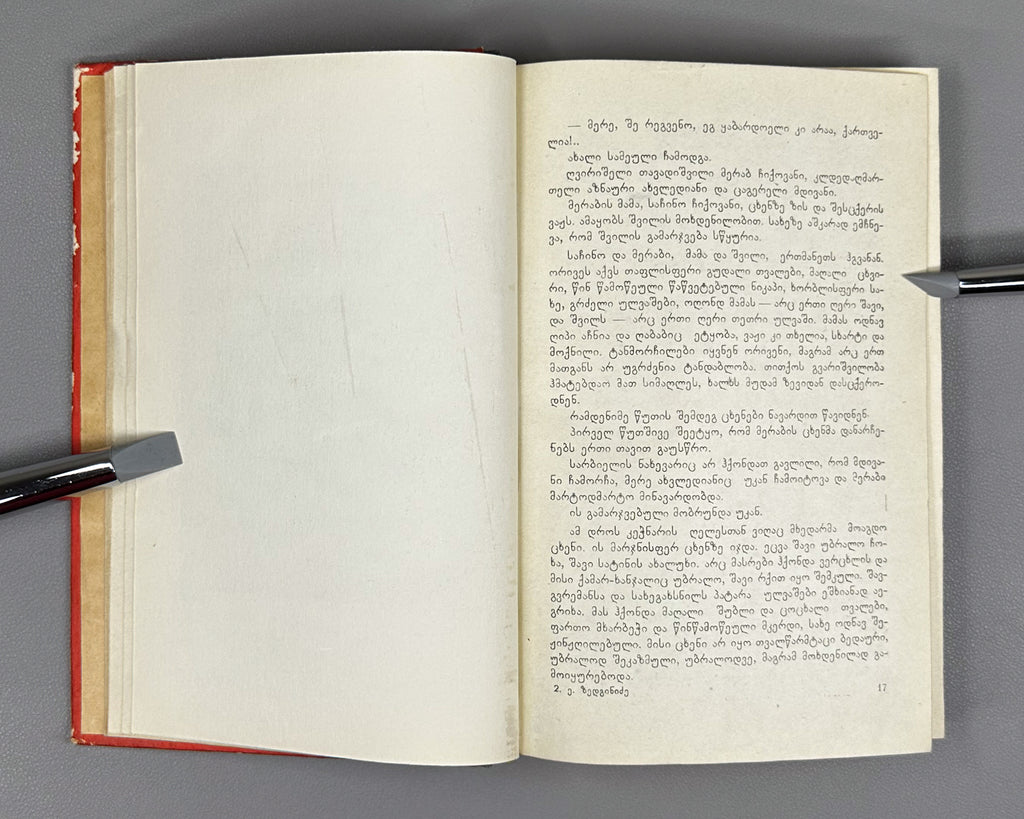 — მერე, შე რეგვენო, ეგ ყაბარდოელი კი არაა, ქართვე-
ლია!..
ახალი სამეული ჩამოდგა.
ღვირიშელი თავადიშვილი მერაბ ჩიქოვანი, კლდედ-ღმარ-
თელი აზნაური ახვლედიანი და ცაგერელი მდივანი.
მერაბის მამა, საჩინო ჩიქოვანი, ცხენზე ზის და შესცქერის
ვაჟს. ამაყობს შვილის მოხდენილობით. სახეზე აშკარად ემჩნე-
ვა, რომ შვილის გამარჯვება სწყურია.
საჩინო და მერაბი, მამა და შვილი, ერთმანეთს ჰგვანან.
ორივეს აქვს თაფლისფერი გუდალი თვალები, მაღალი ცხვი-
რი, წინ წამოწეული წაწვეტებული ნიკაპი, ხორბლისფერი სა-
ხე, გრძელი ულვაშები, ოღონდ მამას — არც ერთი ღერი შავი,
და შვილს — არც ერთი ღერი თეთრი ულვაში. მამას ოდნავ
ღიპი აჩნია და ღაბაბიც ეტყობა, ვაჟი კი თხელია, სხარტი და
მოქნილი. ტანმორჩილები იყვნენ ორივენი, მაგრამ არც ერთ
მათგანს არ უგრძვნია ტანდაბლობა. თითქოს გვარიშვილობა
ჰმატებდაო მათ სიმაღლეს, ხალხს მუდამ ზევიდან დასცქერო-
დნენ.
რამდენიმე წუთის შემდეგ ცხენები ნავარდით წავიდნენ.
პირველ წუთშივე შეეტყო, რომ მერაბის ცხენმა დანარჩე-
ნებს ერთი თავით გაუსწრო.
სარბიელის ნახევარიც არ ჰქონდათ გავლილი, რომ მდივა-
ნი ჩამორჩა, მერე ახვლედიანიც უკან ჩამოიტოვა და მერაბი
მარტოდმარტო მინავარდობდა.
ის გამარჯვებული მობრუნდა უკან.
ამ დროს კეჭნარის ღელესთან ვიღაც მხედარმა მოაგდო
ცხენი. ის მარჯნისფერ ცხენზე იჯდა. ეცვა შავი უბრალო ჩო-
ხა, შავი სატინის ახალუხი. არც მასრები ჰქონდა ვერცხლის და
მისი ქამარ-ხანჯალიც უბრალო, შავი რქით იყო შემკული. შავ-
გვრემანსა და სახეგახსნილს პატარა ულვაშები ეშხიანად აე-
გრიხა. მას ჰქონდა მაღალი შუბლი და ცოცხალი თვალები,
ფართო მხარბეჭი და წინწამოწეული მკერდი, სახე ოდნავ შე-
ჟინჟღილებული. მისი ცხენი არ იყო თვალწარმტაცი ბედაური,
უბრალოდ შეკაზმული, უბრალოდვე, მაგრამ მოხდენილად გა-
მოიყურებოდა.
2. ე. ზედგინიძე
17